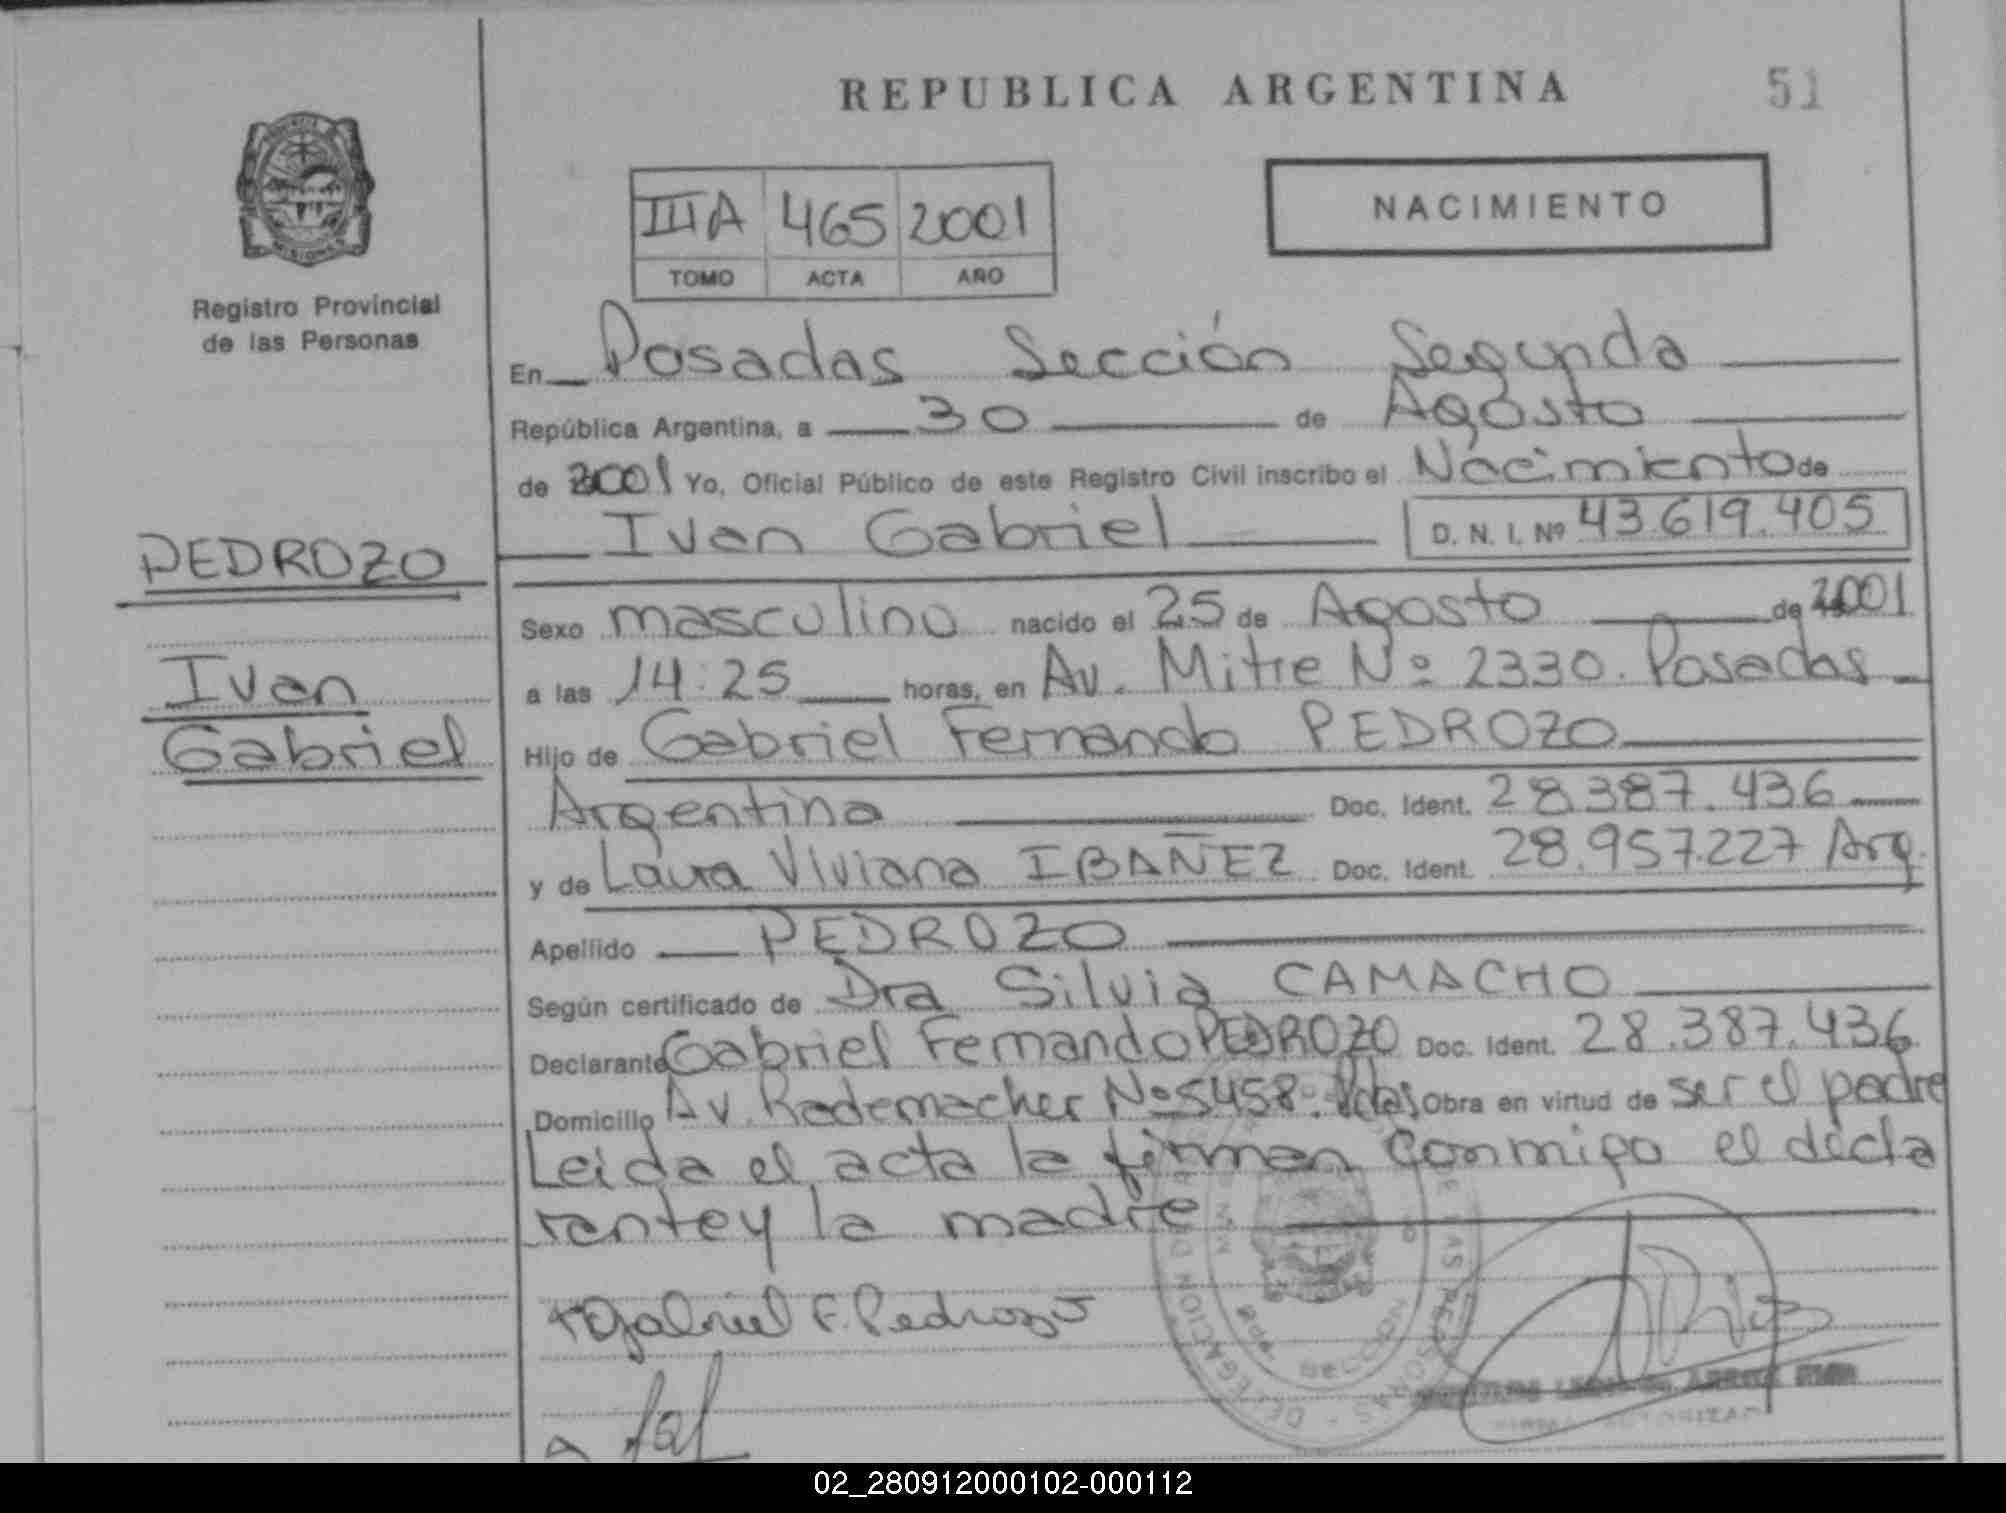 REPUBLICA ARGENTINA
51
IIIA 465 2001
TOMO ACTA AÑO
NACIMIENTO
Registro Provincial
de las Personas
En Posadas Sección Segunda
República Argentina, a 30 de Agosto
de 2001 Yo, Oficial Público de este Registro Civil inscribo el Nacimiento de
Ivan Gabriel D. N. I. Nº 43.619.405
PEDROZO
Ivan
Gabriel
Sexo masculino nacido el 25 de Agosto de 2001
a las 14:25 horas, en Av. Mitre Nº 2330. Posadas
Hijo de Gabriel Fernando PEDROZO
Argentina Doc. Ident. 28.387.436
y de Laura Viviana IBAÑEZ Doc. Ident. 28.957.227 Arg.
Apellido PEDROZO
Según certificado de Dra Silvia CAMACHO
Declarante Gabriel Fernando PEDROZO Doc. Ident. 28.387.436
Domicilio Av. Rademacher Nº 5458. Pdas Obra en virtud de ser el padre
Leida el acta la firman conmigo el decla
rante y la madre
Gabriel F. Pedrozo
02_280912000102-000112